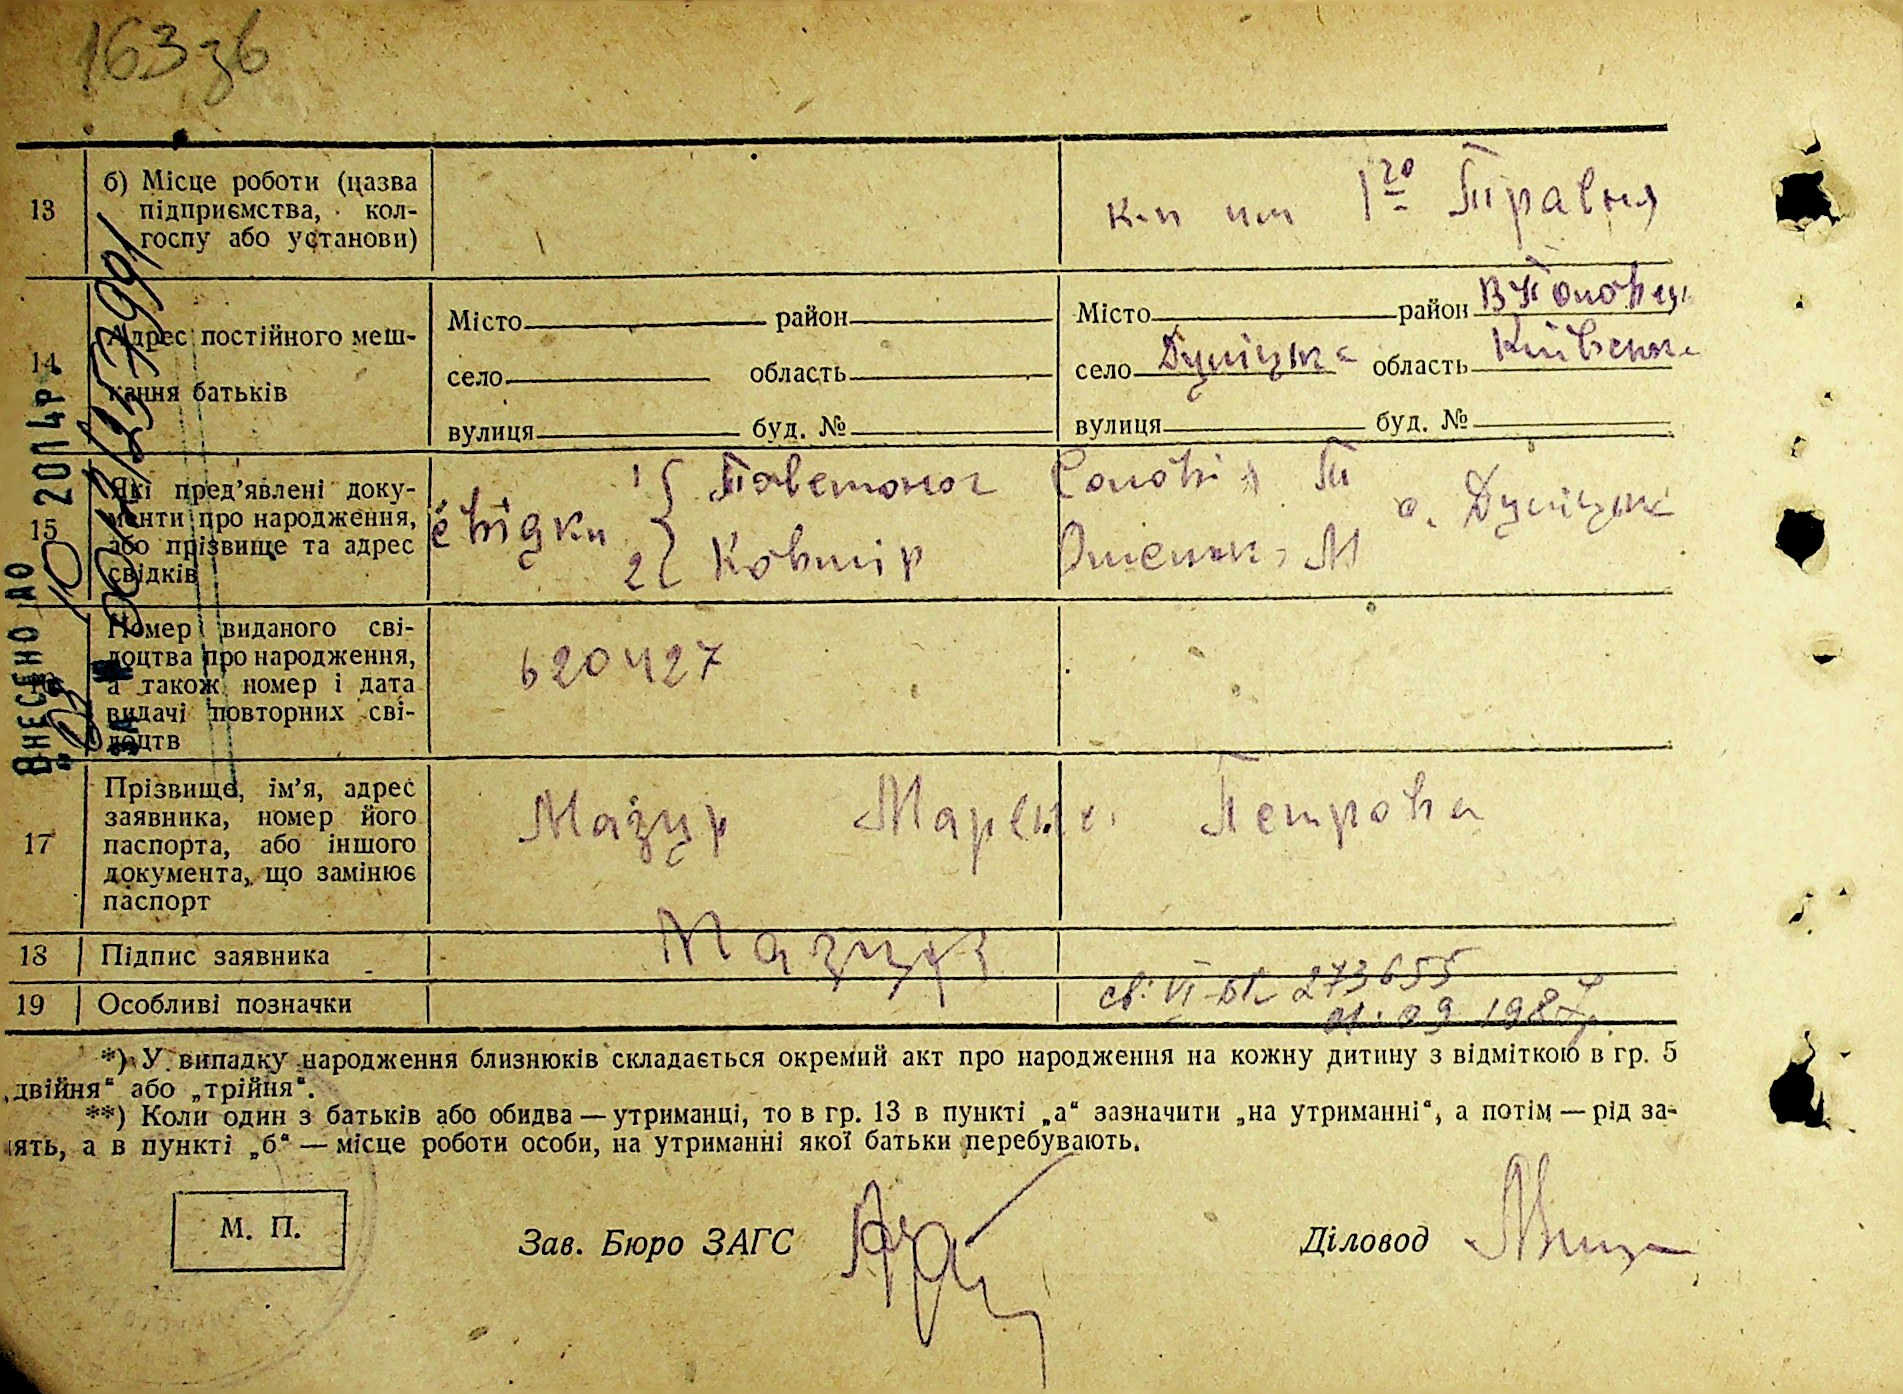 163зв
13 б) Місце роботи (назва
підприємства, кол-
госпу або установи)
к-п им 1го Травня
14 Адрес постійного меш-
кання батьків
Місто район Місто район
село область село область Київська
вулиця буд. № вулиця буд. №
15 Які пред’явлені доку-
менти про народження,
або прізвище та адрес
свідків
свідки
1
2 Ковшір М
16 Номер виданого сві-
доцтва про народження,
а також номер і дата
видачі повторних сві-
доцтв
620427
17 Прізвище, ім’я, адрес
заявника, номер його
паспорта, або іншого
документа, що замінює
паспорт
Мазур Петрова
18 Підпис заявника
Мазур
19 Особливі позначки
св. VI-БК 273655
01.09 1987р.
*) У випадку народження близнюків складається окремий акт про народження на кожну дитину з відміткою в гр. 5
„двійня“ або „трійня“.
**) Коли один з батьків або обидва — утриманці, то в гр. 13 в пункті „а“ зазначити „на утриманні“, а потім — рід за-
нять, а в пункті „б“ — місце роботи особи, на утриманні якої батьки перебувають.
М. П.
Зав. Бюро ЗАГС
Діловод
ВНЕСЕНО ДО
10 2014р.
ЗА №